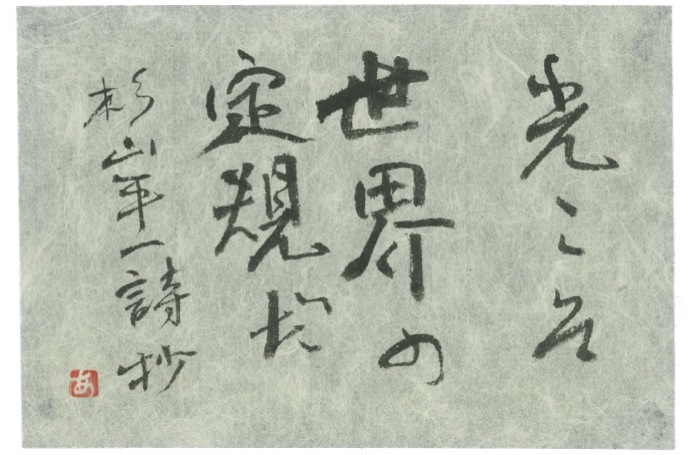 光こそ
世界の
定規だ
杉山平一詩抄